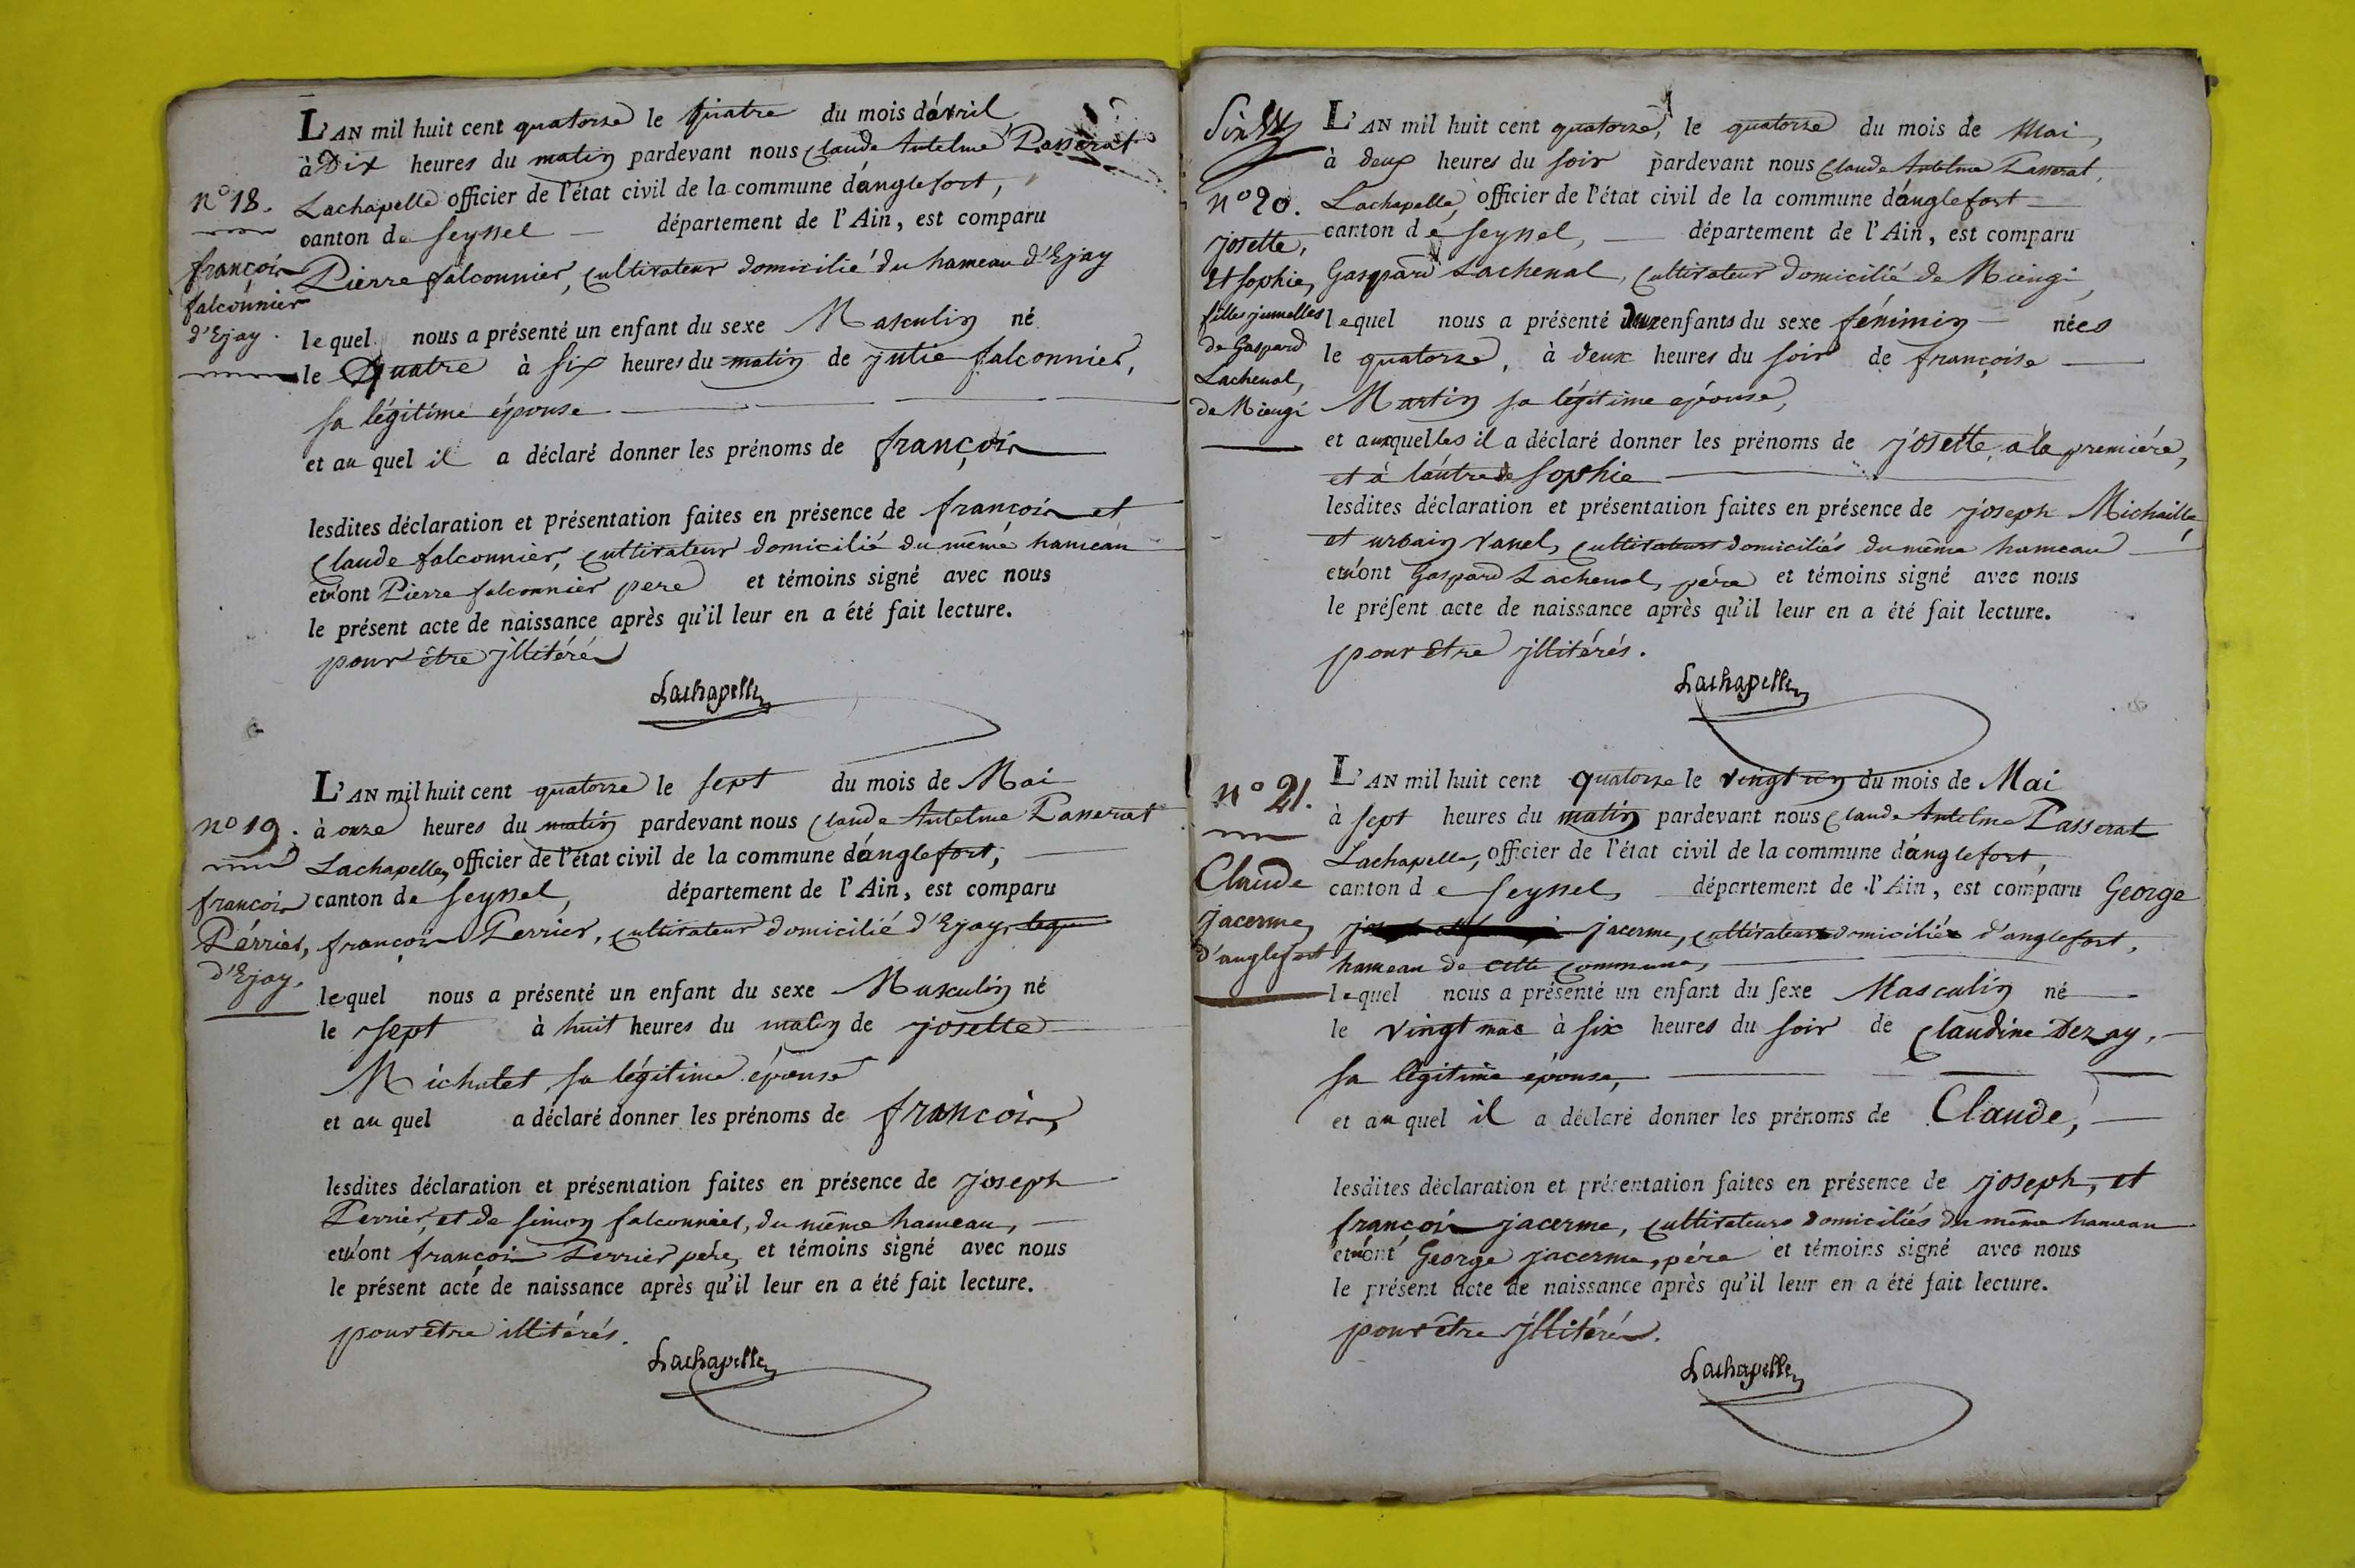 L'AN mil huit cent quatorze le quatre du mois d'avril
à Dix heures du matin pardevant nous Claude Antelme Passerat
n° 18.
Lachapelle officier de l'état civil de la commune d'anglefort,
canton de Seyssel département de l'Ain, est comparu
françois
falconnier
d'Ejay.
Pierre falconnier, cultivateur domicilié du hameau d'Ejay
lequel nous a présenté un enfant du sexe Masculin né
le Quatre à six heures du matin de julie falconnier,
sa légitime épouse
et au quel il a déclaré donner les prénoms de françois
lesdites déclaration et présentation faites en présence de françois et
Claude falconnier, cultivateur domicilié du même hameau
et n'ont Pierre falconnier pere et témoins signé avec nous
le présent acte de naissance après qu'il leur en a été fait lecture.
pour être jllitérés
Lachapelle
L'AN mil huit cent quatorze le sept du mois de Mai
n° 19.
à onze heures du matin pardevant nous Claude Antelme Passerat
Lachapelle, officier de l'état civil de la commune d'anglefort,
françois
Pérrier,
d'Ejay.
canton de Seyssel, département de l'Ain, est comparu
françois Perrier, cultivateur domicilié d'Ejay, leque
lequel nous a présenté un enfant du sexe Masculin né
le sept à huit heures du matin de josette
Michalet, sa légitime épouse
et au quel a déclaré donner les prénoms de françois,
lesdites déclaration et présentation faites en présence de joseph
Perrier, et de simon falconnier, du même hameau,
et n'ont françois Perrier père, et témoins signé avec nous
le présent acte de naissance après qu'il leur en a été fait lecture.
pour être illitérés.
Lachapelle
L'AN mil huit cent quatorze, le quatorze du mois de Mai,
à deux heures du soir pardevant nous Claude Antelme Passerat,
n° 20.
Lachapelle, officier de l'état civil de la commune d'anglefort
canton de Seyssel, département de l'Ain, est comparu
josette,
Et sophie,
filles jumelles
de Gaspard
Lachenal,
de Mieugi
Gaspard Lachenal, cultivateur domicilié de Mieugi,
lequel nous a présenté deux enfants du sexe féminin nées
le quatorze, à deux heures du soir de françoise
Martin sa légitime épouse,
et auxquelles il a déclaré donner les prénoms de josette, à la première,
et à l'autre de sophie
lesdites déclaration et présentation faites en présence de joseph Michaille,
et urbain Vanel, cultivateurs domiciliés du même hameau
et n'ont Gaspard Lachenal, père et témoins signé avec nous
le présent acte de naissance après qu'il leur en a été fait lecture.
pour Etre jllitérés.
Lachapelle
L'AN mil huit cent quatorze le vingt un du mois de Mai
n° 21.
à sept heures du matin pardevant nous Claude Antelme Passerat
Lachapelle, officier de l'état civil de la commune d'anglefort,
Claude
jacerme,
d'anglefort
canton de Seyssel, département de l'Ain, est comparu George
jacerme, cultivateur domicilié d'anglefort,
hameau de cette commune,
lequel nous a présenté un enfant du sexe Masculin né
le vingt mai à six heures du soir de Claudine Dezay,
sa légitime épouse,
et au quel il a déclaré donner les prénoms de Claude,
lesdites déclaration et présentation faites en présence de joseph, et
françois jacerme, cultivateurs domiciliés du même hameau
et n'ont George jacerme, père et témoins signé avec nous
le présent acte de naissance après qu'il leur en a été fait lecture.
pour être jllitérés.
Lachapelle